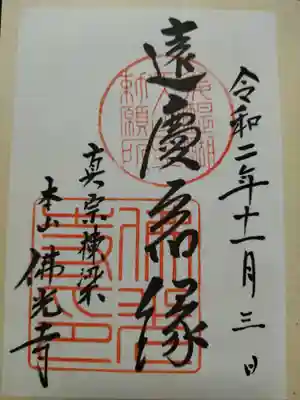 令和二年十一月三日
遠慶宿縁
真宗棟梁
本山 佛光寺
勅願所
佛光寺印